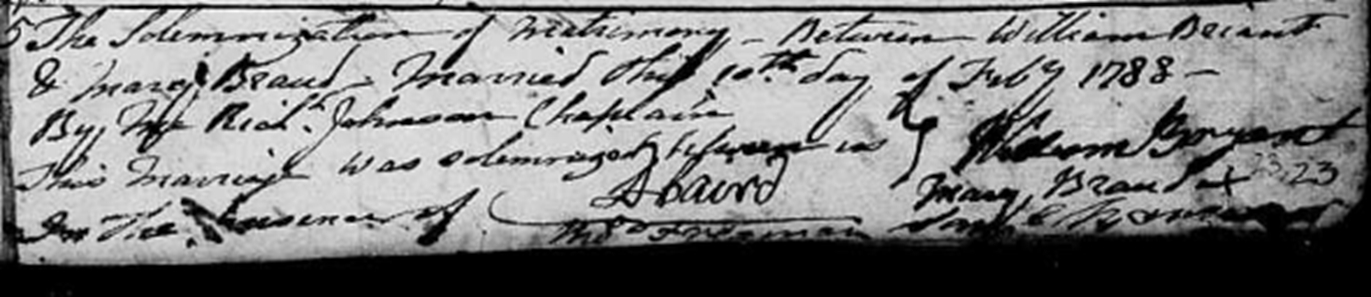 5 The Solemnization of Matrimony - Between William Briant
& Mary Braud - Married this 10th day of Feby 1788 -
By Me Richd. Johnson Chaplain
This Marriage was solemnized between us } William Bryant
Mary Braud x 23 23
In the Presence of